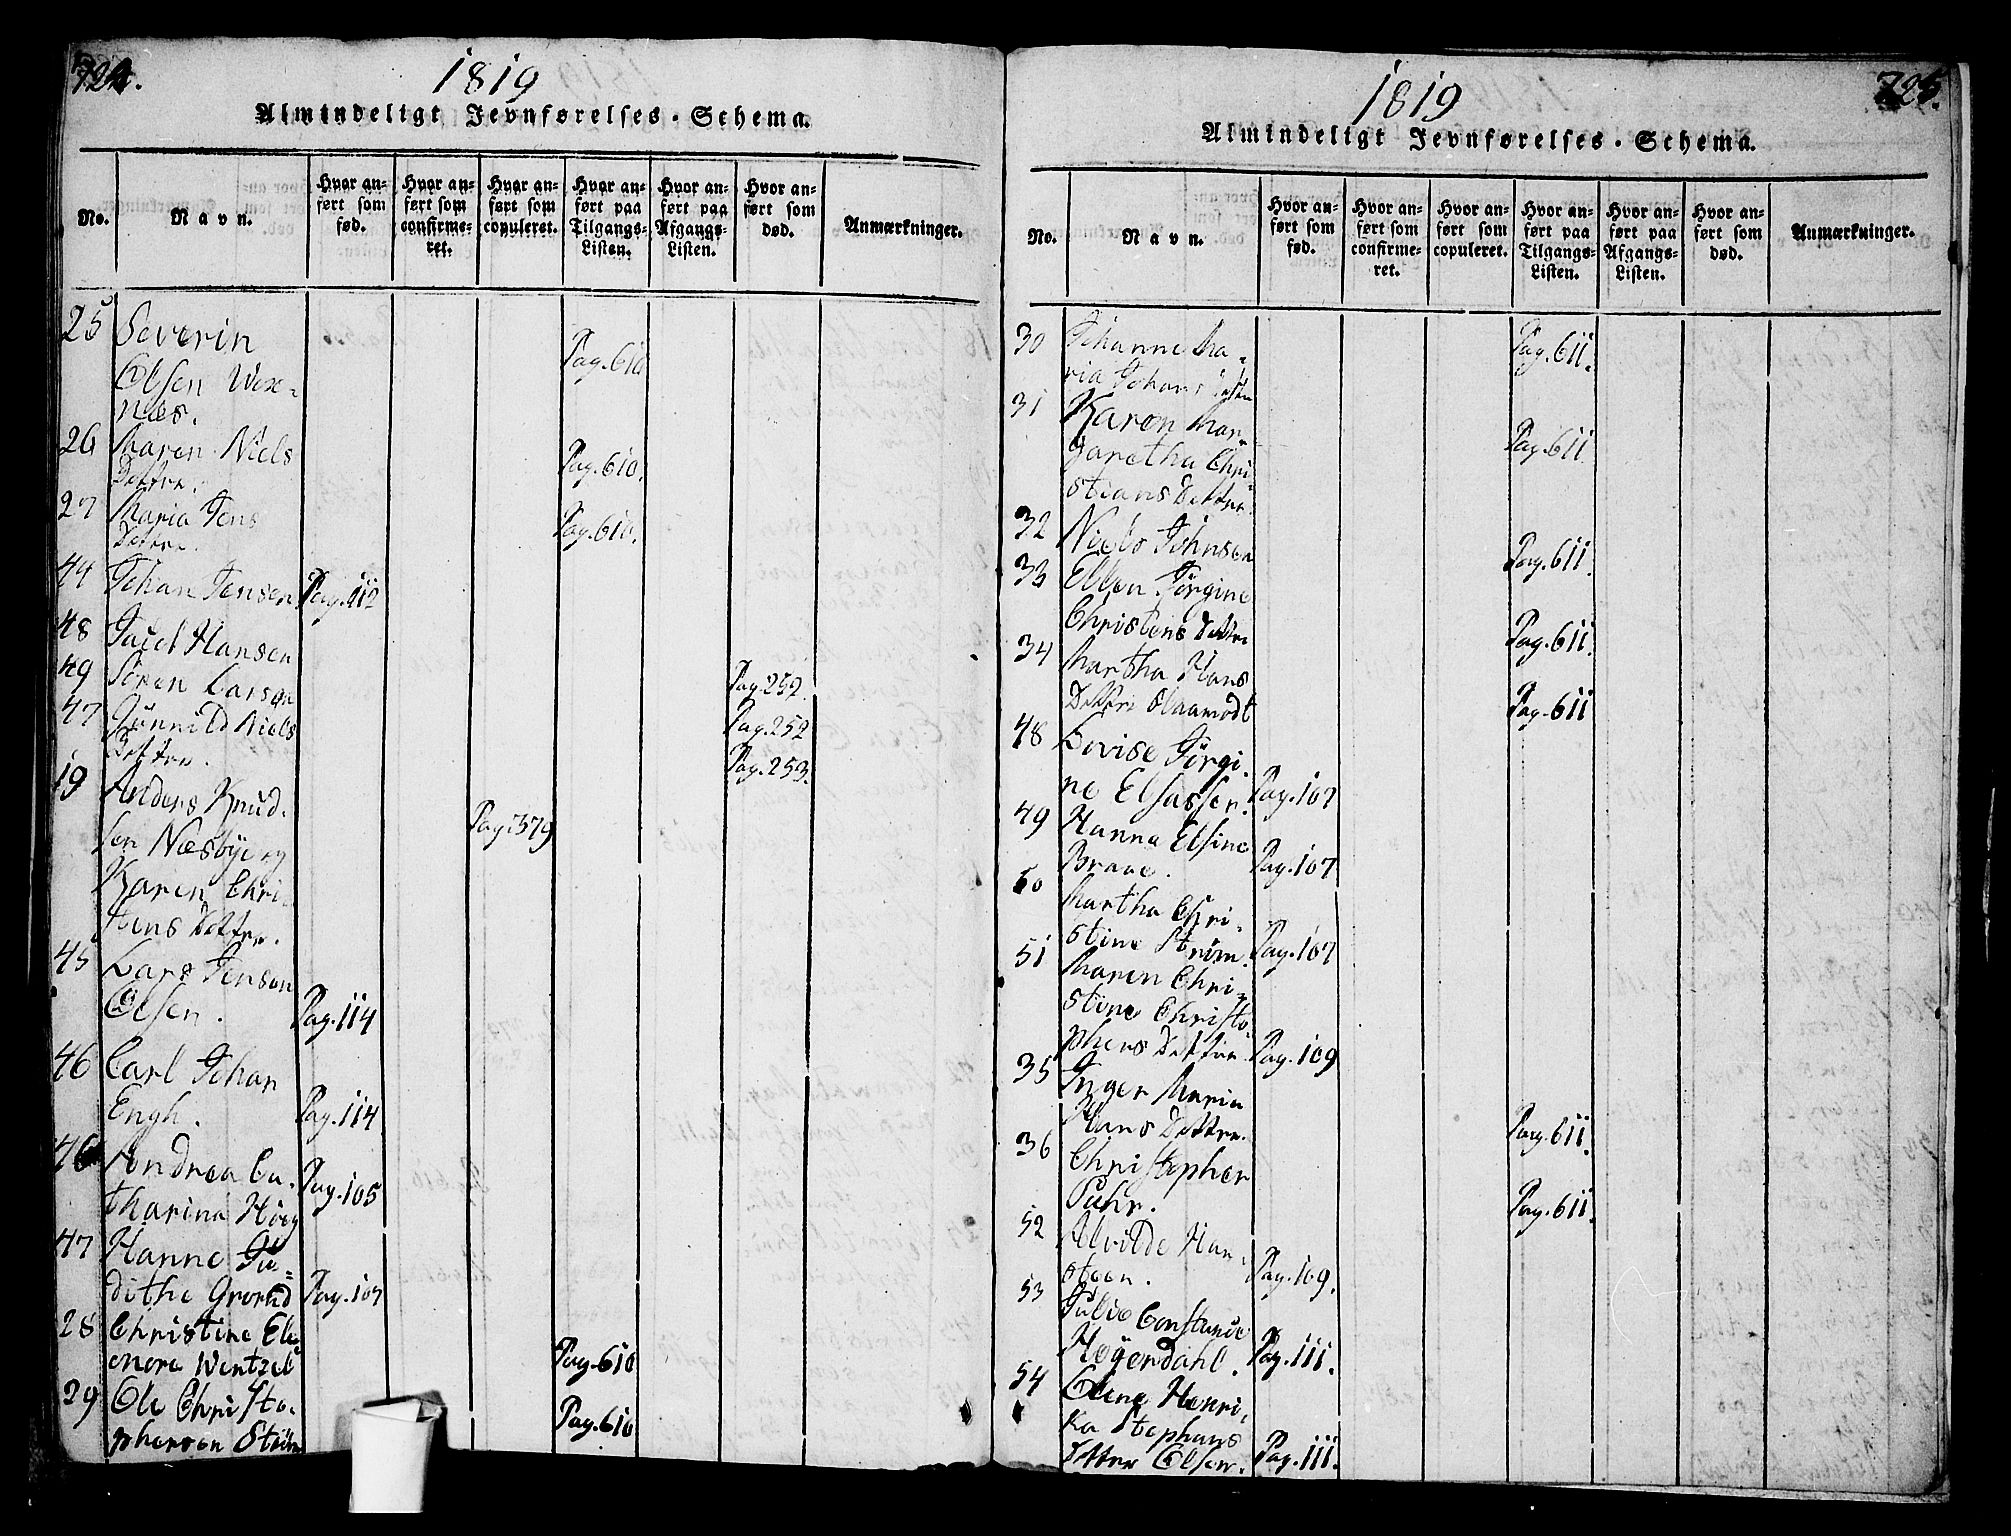 724.
1819
Almindeligt Jevnførelses-Schema.
No.
Navn.
Hvor anført som fød.
Hvor anført som confirmeret.
Hvor anført som copuleret.
Hvor anført paa Tilgangs-Listen.
Hvor anført paa Afgangs-Listen.
Hvor anført som død.
Anmærkninger.
25 Severin
Olsen Wex=
næs. Pag. 610
26 Maren Niels
Dattre. Pag. 610.
27 Maria Jens
Dattre. Pag. 610.
44 Johan Jensen Pag. 112
48 Juul Hansen Pag. 252.
49 Søren Larsen Pag. 252
47 Gunnild Niels
Dattre. Pag. 253.
19 Anders Knud-
sen Næsbye og Pag. 379
Karen Chri-
stens Dattre.
45 Lars Jensen
Olsen. Pag. 114
46 Carl Johan
Engh. Pag. 114
46 Andrea Ca-
tharina Höeg Pag. 105
47 Hanne Ju=
dithe Grorud Pag. 107
28 Christine Ele
onore Wentzel Pag. 610
29 Ole Christo-
phersen Ström Pag. 610
725.
1819
Almindeligt Jevnførelses-Schema.
No.
Navn.
Hvor anført som fød.
Hvor anført som confirmeret.
Hvor anført som copuleret.
Hvor anført paa Tilgangs-Listen.
Hvor anført paa Afgangs-Listen.
Hvor anført som død.
Anmærkninger.
30 Johanne Ma-
ria Johans Dattre Pag. 611.
31 Karen Mar=
garetha Chri=
stians Dattre. Pag. 611.
32 Niels Johnsen Pag. 611.
33 Ellen Jörgine
Christens Dattre Pag. 611.
34 Martha Hans
Dattre Olaamodt Pag. 611
48 Lovise Jörgi-
ne Elsassen. Pag. 107
49 Hanna Elsine
Braae. Pag. 107
50 Martha Chri-
stine Ström. Pag. 107
51 Maren Chri=
stine Christo-
phers Dattre. Pag. 109
35 Inger Maria
Hans Dattre. Pag. 611.
36 Christopher
Puhr. Pag. 611.
52 Alvilde Han-
steen. Pag. 109.
53 Julie Constance
Høyendahl. Pag. 111.
54 Olene Henri-
ka Stephans
Datter Olsen. Pag. 111.